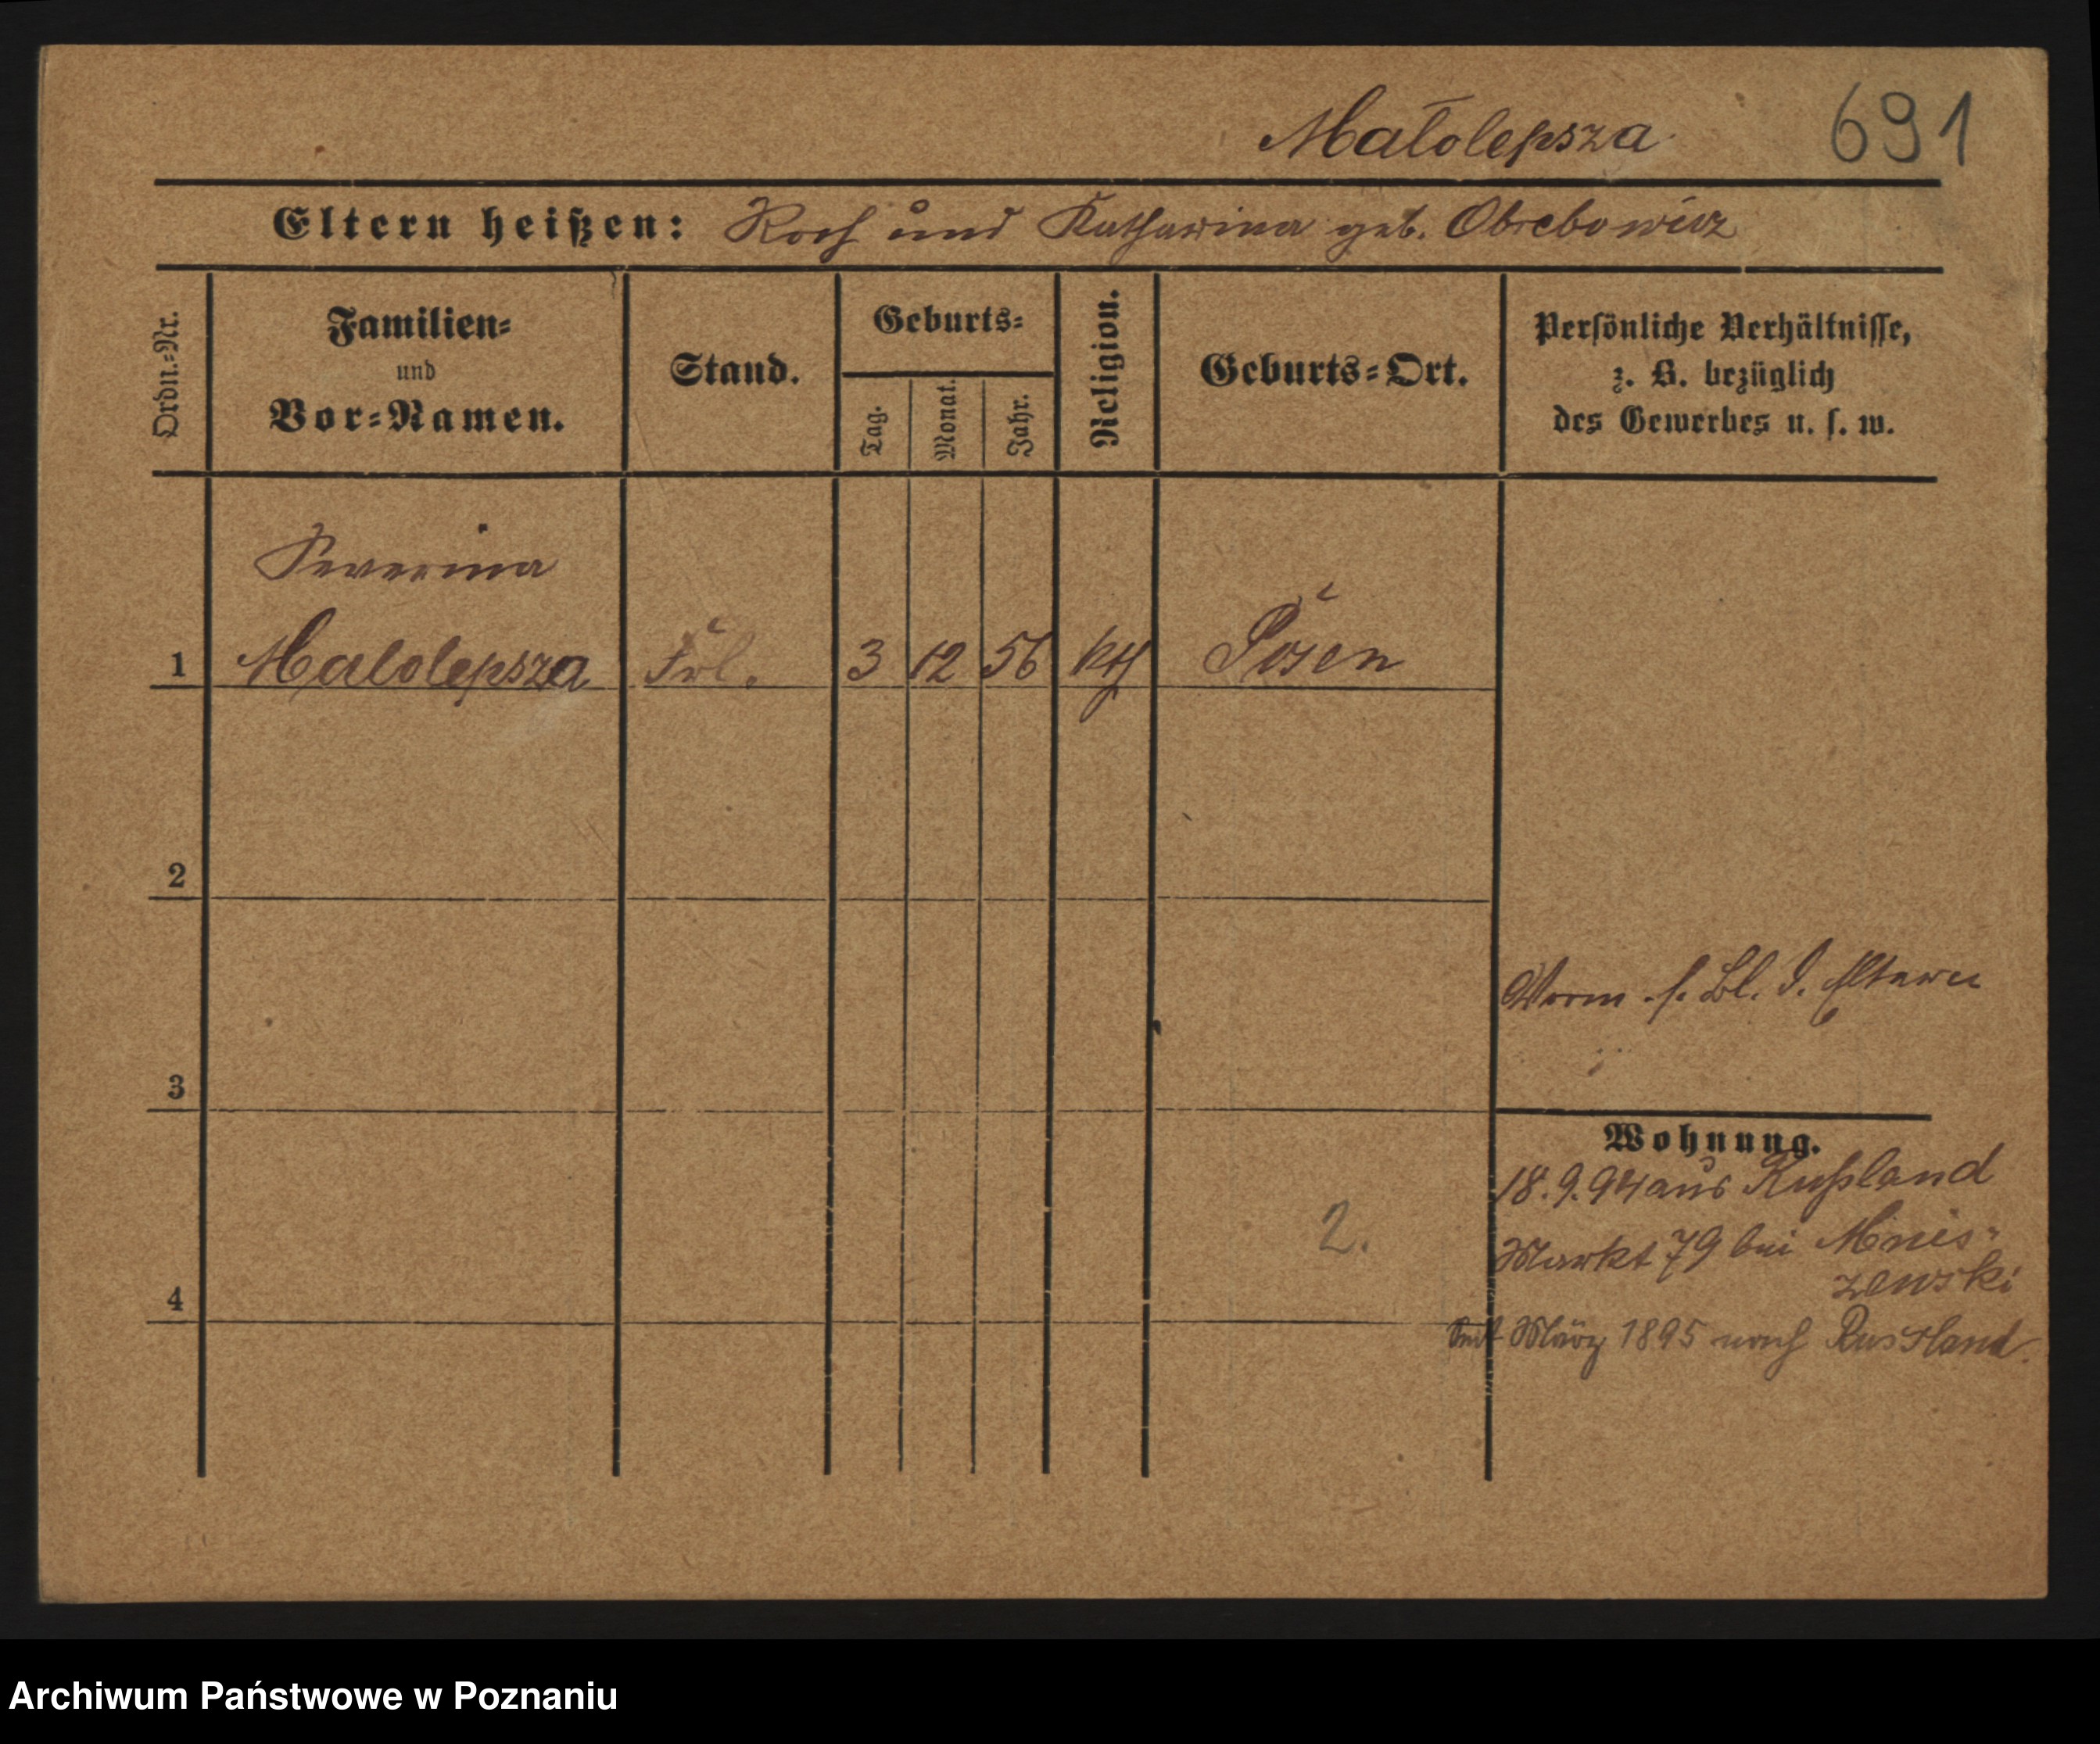 Małolepsza 691
Eltern heißen: Roch und Katharina geb. Obrebowicz
Ordn.=Nr.
Familien=
und
Vor=Namen.
Stand.
Geburts=
Tag.
Monat.
Jahr.
Religion.
Geburts=Ort.
Persönliche Verhältnisse,
z. B. bezüglich
des Gewerbes u. s. w.
Severina
1 Malolepsza Frl. 3 12 56 kth Posen
2
Vorm s. Bl. d. Eltern
3
Wohnung.
18.9.94 aus Rußland
2.
Markt 79 bei Mnis-
zewski
4
Seit März 1895 nach Russland.
Archiwum Państwowe w Poznaniu